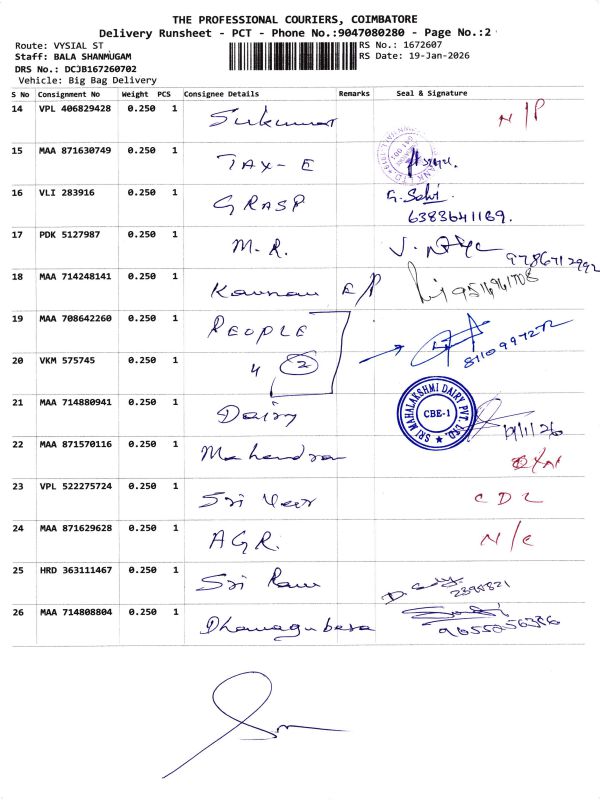 THE PROFESSIONAL COURIERS, COIMBATORE
Delivery Runsheet - PCT - Phone No.:9047080280 - Page No.:2
Route: VYSIAL ST
RS No.: 1672607
Staff: BALA SHANMUGAM
RS Date: 19-Jan-2026
DRS No.: DCJB167260702
Vehicle: Big Bag Delivery
S No Consignment No Weight PCS Consignee Details Remarks Seal & Signature
14 VPL 406829428 0.250 1 Sukumar N/P
15 MAA 871630749 0.250 1 TAX-E
16 VLI 283916 0.250 1 GRASP G. Selvi
6383641169.
17 PDK 5127987 0.250 1 M.R. 9786712992
18 MAA 714248141 0.250 1 E/P 9514961708
19 MAA 708642260 0.250 1 PEOPLE
8110997272
20 VKM 575745 0.250 1 4 2
21 MAA 714880941 0.250 1 Dairy SRI MAHALAKSHMI DAIRY PVT. LTD. CBE-1
22 MAA 871570116 0.250 1 Mahendran
23 VPL 522275724 0.250 1 Sri CDL
24 MAA 871629628 0.250 1 AGR. N/C
25 HRD 363111467 0.250 1 Sri Ram
26 MAA 714808804 0.250 1